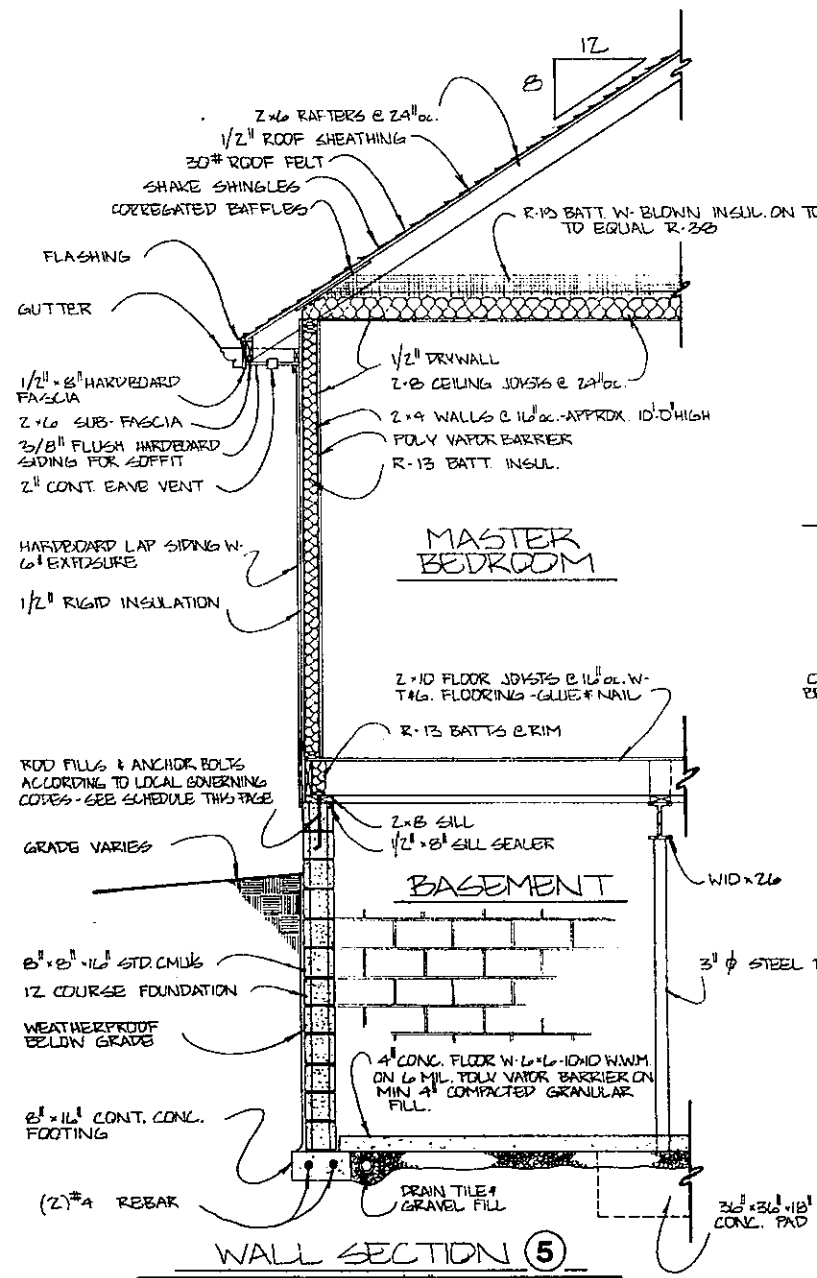 12
8
2x6 RAFTERS @ 24" oc.
1/2" ROOF SHEATHING
30# ROOF FELT
SHAKE SHINGLES
CORREGATED BAFFLES
R-19 BATT. W- BLOWN INSUL. ON TO
TO EQUAL R-38
FLASHING
GUTTER
1/2" x 8" HARDBOARD
FASCIA
2x6 SUB-FASCIA
3/8" FLUSH HARDBOARD
SIDING FOR SOFFIT
2" CONT. EAVE VENT
1/2" DRYWALL
2x8 CEILING JOISTS @ 24" oc.
2x4 WALLS @ 16" oc.-APPROX. 10'-0" HIGH
POLY VAPOR BARRIER
R-13 BATT. INSUL.
HARDBOARD LAP SIDING W-
6" EXPOSURE
1/2" RIGID INSULATION
MASTER
BEDROOM
2x10 FLOOR JOISTS @ 16" oc. W-
T&G. FLOORING -GLUE & NAIL
R-13 BATTS @ RIM
ROD FILLS & ANCHOR BOLTS
ACCORDING TO LOCAL GOVERNING
CODES - SEE SCHEDULE THIS PAGE
2x8 SILL
1/2" x 8" SILL SEALER
GRADE VARIES
BASEMENT
W10x26
8" x 8" x 16" STD. CMU'S
12 COURSE FOUNDATION
WEATHERPROOF
BELOW GRADE
3" φ STEEL
4" CONC. FLOOR W- 6x6-10x10 W.W.M.
ON 6 MIL. POLY VAPOR BARRIER ON
MIN 4" COMPACTED GRANULAR
FILL.
8" x 16" CONT. CONC.
FOOTING
(2) #4 REBAR
DRAIN TILE &
GRAVEL FILL
36" x 36" x 18"
CONC. PAD
WALL SECTION 5